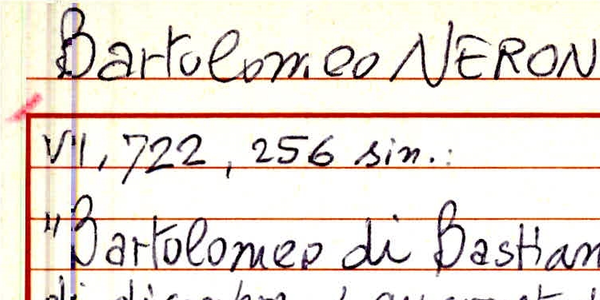 Bartolomeo NERON
VI, 722, 256 sin.:
"Bartolomeo di Bastian
di